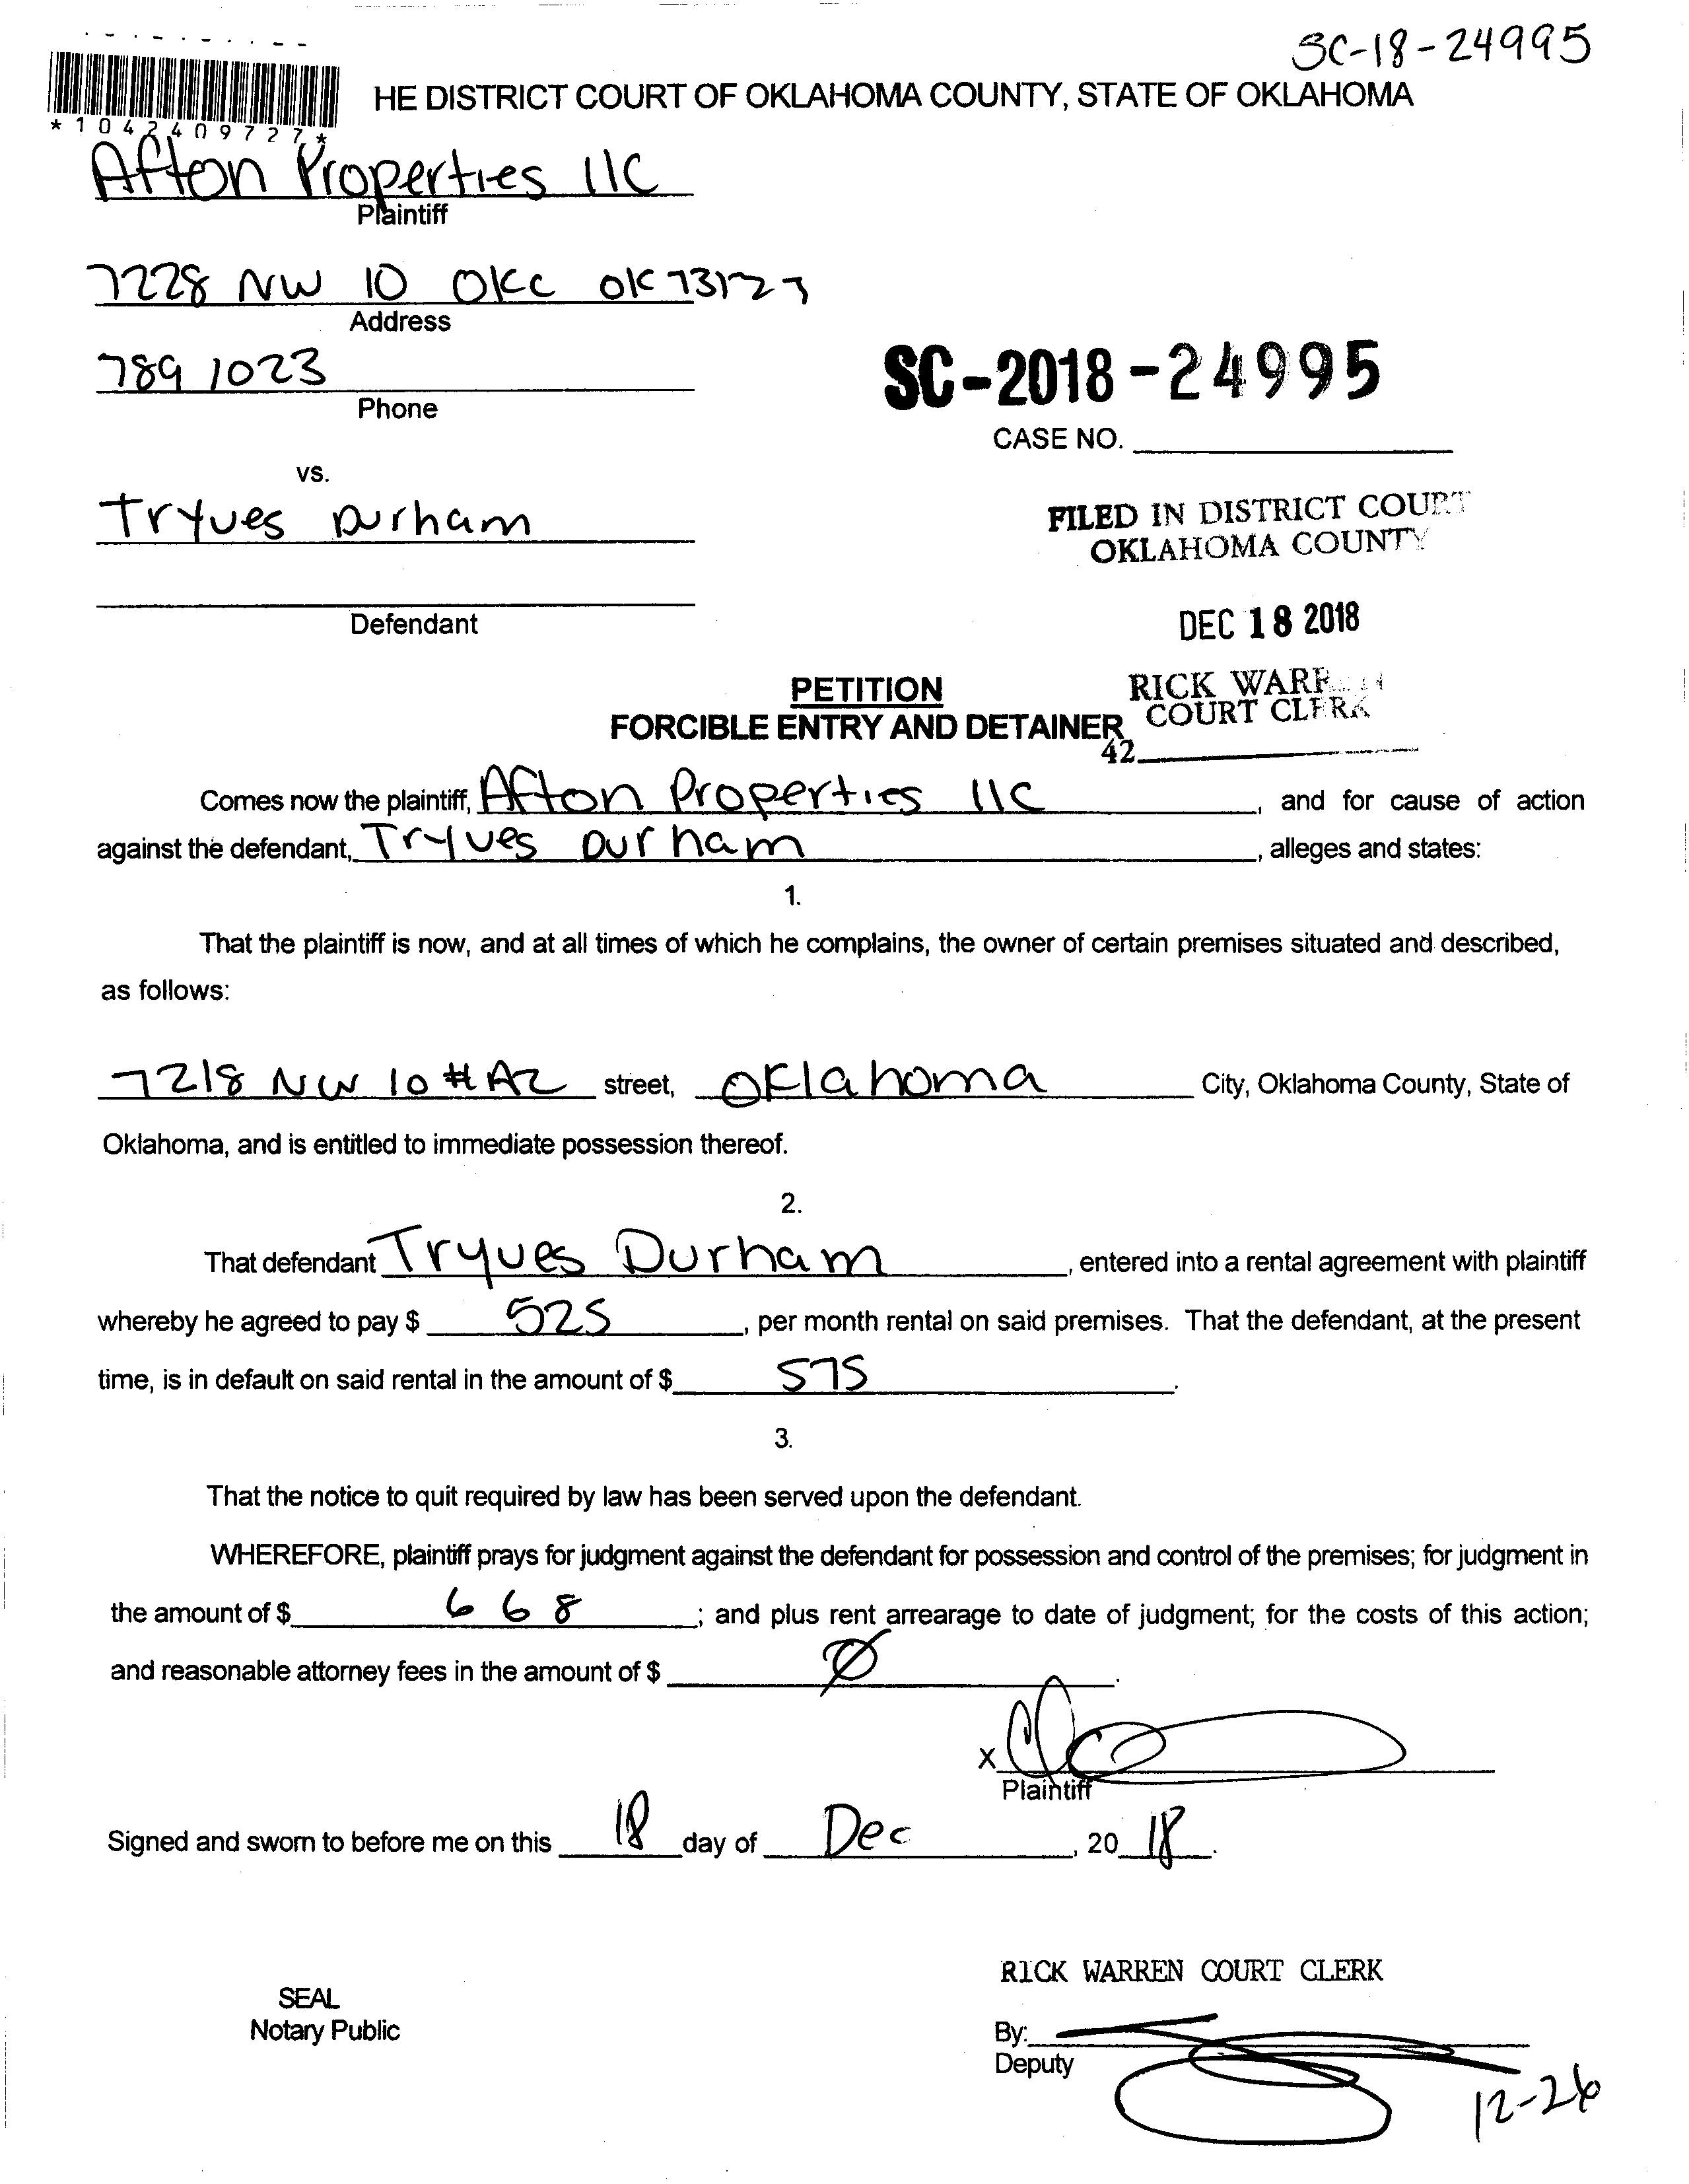 SC-18-24995
HE DISTRICT COURT OF OKLAHOMA COUNTY, STATE OF OKLAHOMA
*1042409727*
Afton Properties llc
Plaintiff
7228 NW 10 OKC OK 73127
Address
789 1023
Phone
SC-2018-24995
CASE NO.
vs.
Tryves Durham
FILED IN DISTRICT COURT
OKLAHOMA COUNTY
Defendant
DEC 18 2018
PETITION
RICK WARREN
FORCIBLE ENTRY AND DETAINER
COURT CLERK
42
Comes now the plaintiff, Afton Properties llc, and for cause of action
against the defendant, Tryves Durham, alleges and states:
1.
That the plaintiff is now, and at all times of which he complains, the owner of certain premises situated and described,
as follows:
7218 NW 10 #A2 street, Oklahoma City, Oklahoma County, State of
Oklahoma, and is entitled to immediate possession thereof.
2.
That defendant Tryves Durham, entered into a rental agreement with plaintiff
whereby he agreed to pay $ 525, per month rental on said premises. That the defendant, at the present
time, is in default on said rental in the amount of $ 575.
3.
That the notice to quit required by law has been served upon the defendant.
WHEREFORE, plaintiff prays for judgment against the defendant for possession and control of the premises; for judgment in
the amount of $ 668; and plus rent arrearage to date of judgment; for the costs of this action;
and reasonable attorney fees in the amount of $ Ø.
X
Plaintiff
Signed and sworn to before me on this 18 day of Dec, 20 18.
RICK WARREN COURT CLERK
SEAL
Notary Public
By:
Deputy
12-26